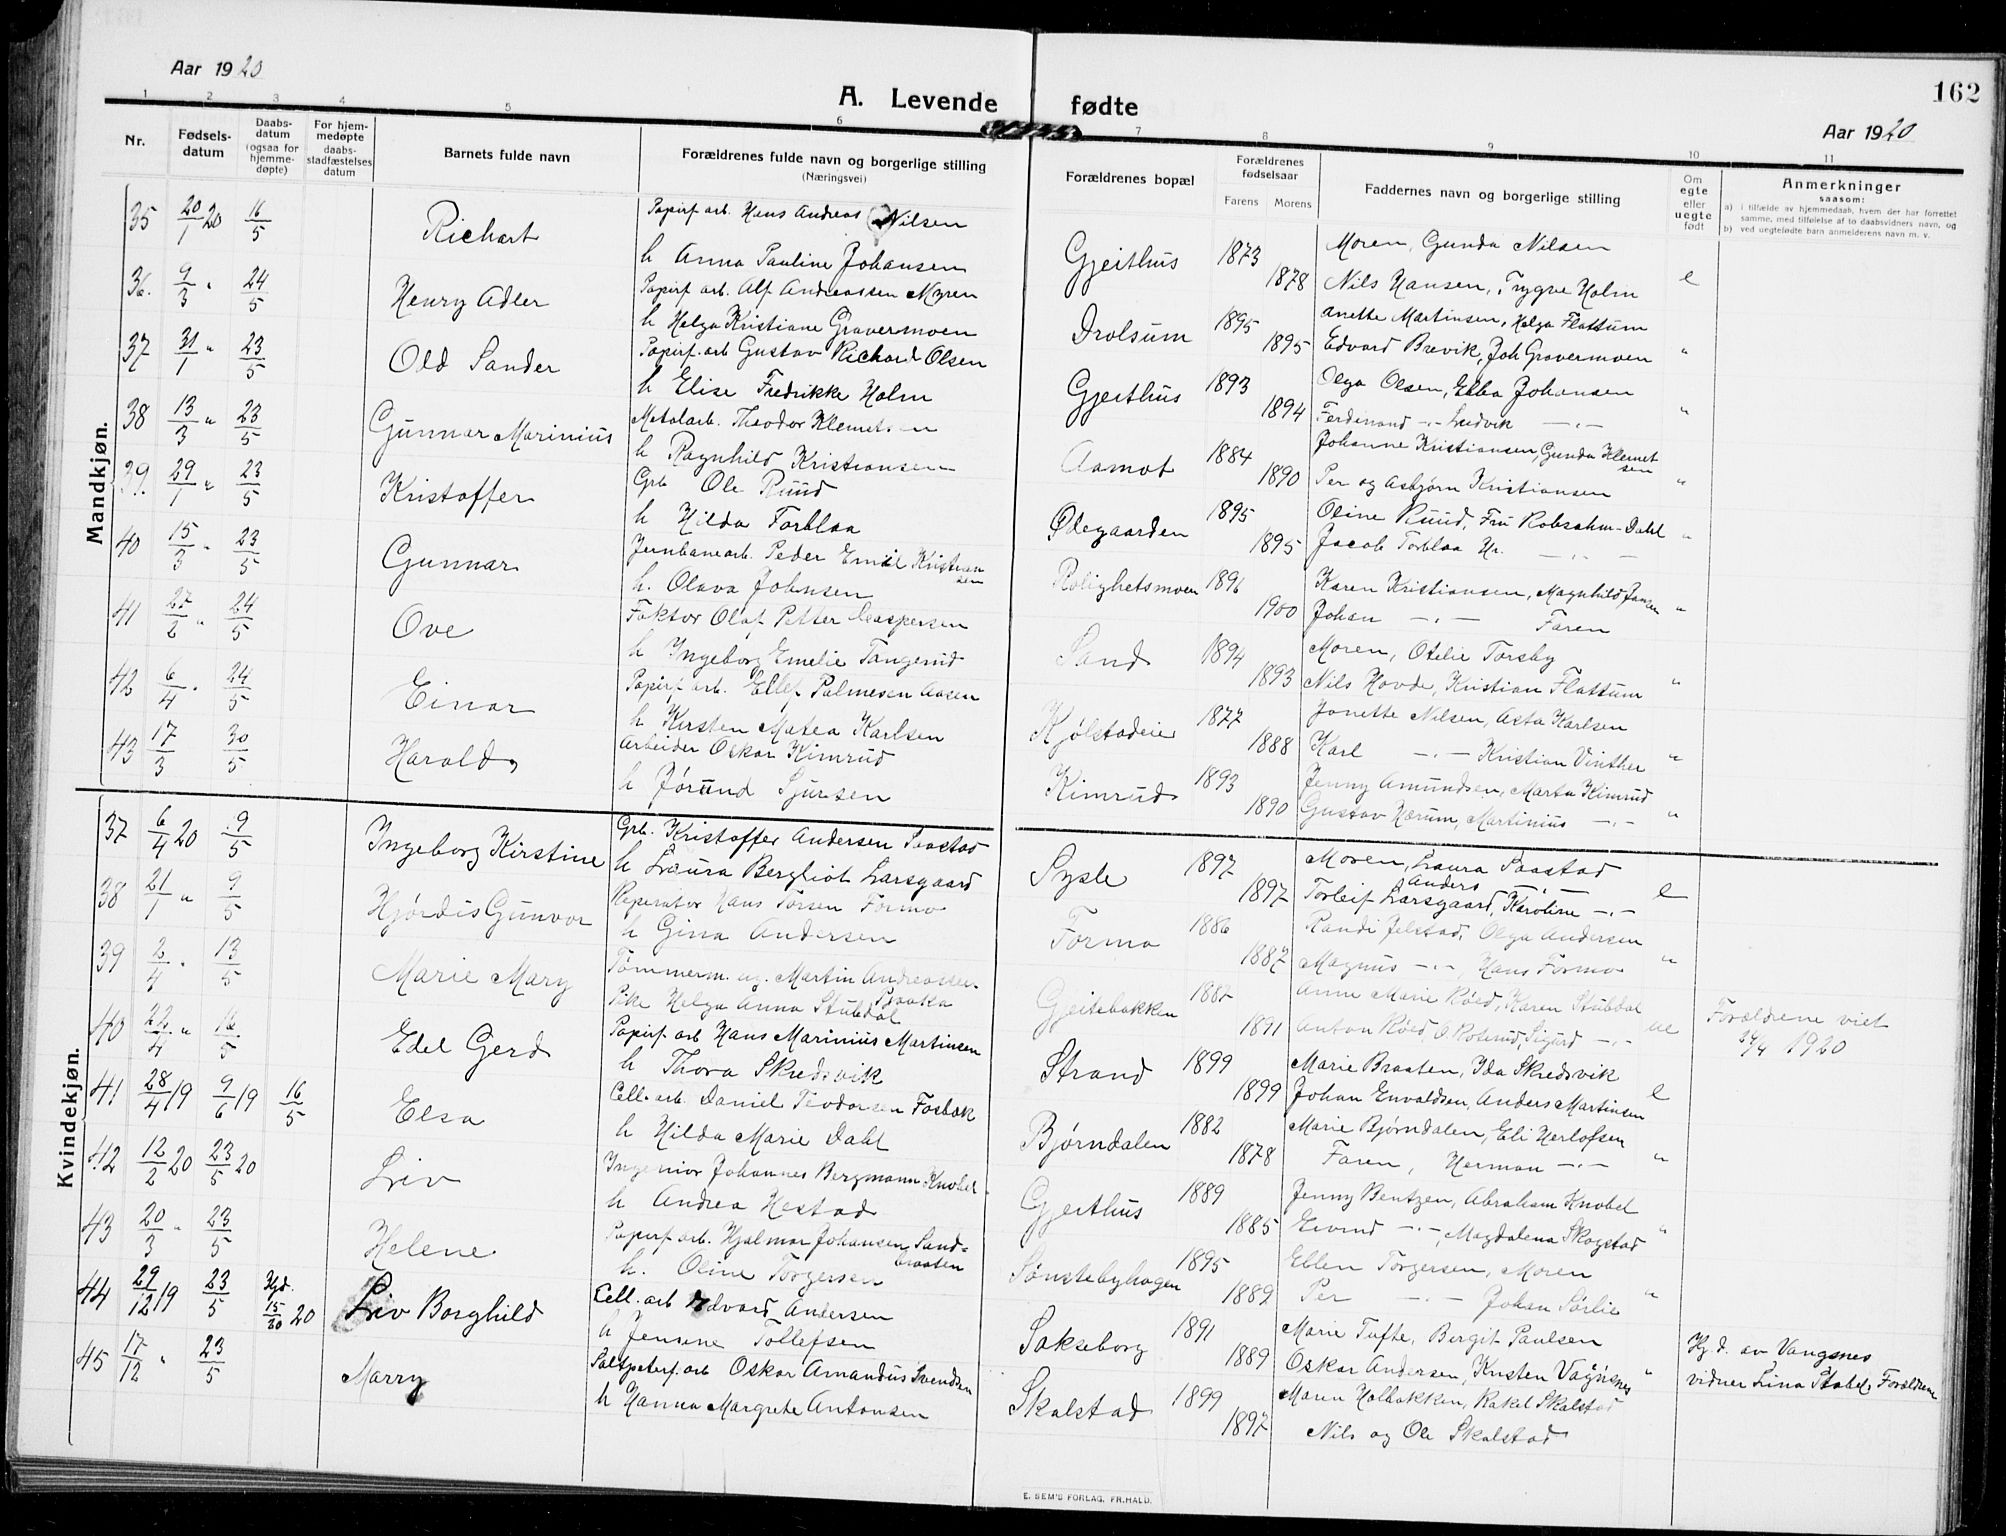 Aar 1920
A. Levende fødte
162
Aar 1920
1 2 3 4 5 6 7 8 9 10 11
Nr.
Fødsels-datum
Daabs-datum (ogsaa for hjemme-døpte)
For hjem-medøpte daabs-stadfæstelses datum
Barnets fulde navn
Forældrenes fulde navn og borgerlige stilling (Næringsvei)
Forældrenes bopæl
Forældrenes fødselsaar
Farens Morens
Faddernes navn og borgerlige stilling
Om egte eller uegte født
Anmerkninger
saasom:
a) i tilfælde av hjemmedaab, hvem der har forrettet samme, med tilføielse af to daabsvidners navn, og
b) ved uegtefødte barn anmelderens navn m. v.
Mandkjøn.
35 20/1 20 16/5 Richart Papirf. arb. Hans Andreas Nilsen Gjeithus 1873 Moren, Gunda Nilsen
h Anna Pauline Johansen 1878 Nils Hansen, Trygve Holm e
36. 9/3 " 24/5 Henry Adler Papirf. arb. Alf Andreassen Myren Drolsum 1895 Anette Martinsen, Helga Flattum
h Helga Kristiane Gravermoen 1895 Edvard Brevik, Joh Gravermoen "
37 31/1 " 23/5 Old Sander Papirf. arb Gustav Richard Olsen Gjeithus 1893 Olga Olsen, Ebba Johansen
h Elise Fredrikke Holm 1894 Ferdinand -"- Ludvik -"- "
38 13/3 " 23/5 Gunnar Marinius Metalarb. Theodor Klemetsen Aamot 1884 Johanne Kristiansen, Gunda Klemetsen
h Ragnhild Kristiansen 1890 Per og Asbjørn Kristiansen "
39. 29/1 " 23/5 Kristoffer Grb. Ole Ruud Ødegaarden 1895 Oline Ruud, Fru Robsahm-Dahl
h Hilda Torblaa 1895 Jacob Torblaa Hr. -"- "
40 15/3 " 23/5 Gunnar Jernbanearb. Peder Emil Kristiansen Rolighetsmoen 1896 Karen Kristiansen, Magnhild Jansen
h. Olava Johnsen 1900 Johan -"- Faren "
41 27/2 " 24/5 Ove Faktor Olaf Petter Caspersen Sand 1894 Moren, Otelie Torsby
h Ingeborg Emelie Tangerud 1893 Nils Hovde, Kristian Flattum "
42 6/4 " 24/5 Einar Papirf. arb. Ellef Palmesen Aasen Kjølstadeie 1877 Janette Nilsen, Asta Karlsen
h Kirsten Matea Karlsen 1888 Karl -"- Kristian Vinther "
43 17/3 30/5 Harald Arbeider Oskar Kimrud Kimrud 1893 Jenny Amundsen, Marta Kimrud
h Jørund Sjursen 1890 Gustav Hærum, Martinius -"- "
Kvindekjøn.
37 6/4 20 9/5 Ingeborg Kirstine Grb. Kristoffer Andersen Saastad Sysle 1897 Moren, Laura Saastad
h Laura Bergliot Larsgaard 1897 Torleif Larsgaard, Anders -"- Karoline -"- e
38 21/1 " 9/5 Hjørdis Gunvor Reperatør Hans Torsen Formo Formo 1886 Randi Jelstad, Olga Andersen
h Gina Andersen 1887 Magnus -"-, Hans Formo "
39 2/4 " 13/5 Marie Mary Tømmerm. ug. Martin Andreassen Braaka Gjeitebakken 1882 Anne Marie Røed, Karen Stubdal
Pike Helga Anna Stubdal 1891 Anton Røed, O. Roterud, Sigurd -"- ue Forældrene viet 24/4 1920
40 22/4 " 16/5 Edel Gerd Papirf. arb Hans Marinius Martinsen Strand 1899 Marie Braaten, Ida Skredsvik
h Thora Skredsvik 1899 Johan Envaldsen, Anders Martinsen e
41 28/4 19 9/6 19 16/5 Elsa Cell. arb. Daniel Teodorsen Fosbak Bjørndalen 1882 Marie Bjørndalen, Eli Herlofsen
h Hilda Marie Dahl 1878 Faren, Herman -"- "
42 12/2 20 23/5 20 Liv Ingeniør Johannes Bergmann Knobel Gjeithus 1889 Jenny Bentzen, Abraham Knobel
h Andrea Hestad 1885 Eivind -"-, Magdalena Skogstad "
43 20/3 " 23/5 Helene Papirf. arb. Hjalmar Johansen Sandbraaten Sønstebyhagen 1895 Ellen Torgersen, Moren
h. Oline Torgersen 1889 Per -"- Johan Sørlie "
44 29/12 19 23/5 Hjd. 15/30 20 Liv Borghild Cell. arb Edvard Andersen Sakseborg 1891 Marie Tufte, Bergit Paulsen
h Jensine Tollefsen 1889 Oskar Andersen, Kristen Vagnsnes " Hj. d. av Vangsnes vidner Lina Stabel, Forældrene
45 17/12 " 23/5 Marry Saltpeterf. arb Oskar Amandus Svendsen Skalstad 1899 Maren Holbakken, Rakel Skalstad
h Hanna Margrete Antonsen 1897 Nils og Ole Skalstad
E. SEM'S FORLAG, FR.HALD.